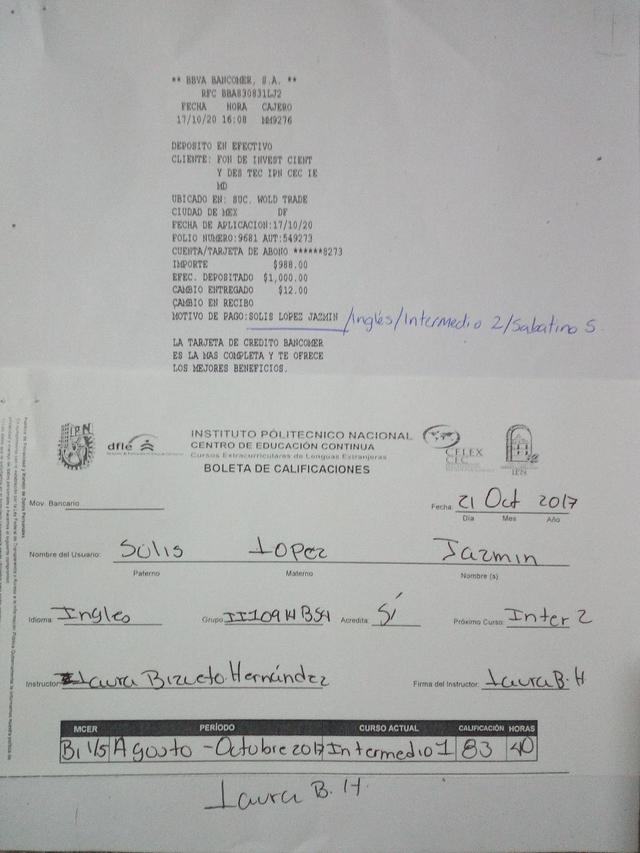 ** BBVA BANCOMER, S.A. **
RFC BBA830831LJ2
FECHA HORA CAJERO
17/10/20 16:08 MM9276
DEPOSITO EN EFECTIVO
CLIENTE: FON DE INVEST CIENT
Y DES TEC IPN CEC IE
MD
UBICADO EN: SUC. WOLD TRADE
CIUDAD DE MEX DF
FECHA DE APLICACION:17/10/20
FOLIO NUMERO:9681 AUT:549273
CUENTA/TARJETA DE ABONO ******8273
IMPORTE $988.00
EFEC. DEPOSITADO $1,000.00
CAMBIO ENTREGADO $12.00
CAMBIO EN RECIBO
MOTIVO DE PAGO:SOLIS LOPEZ JAZMIN /Inglés/Intermedio 2/Sabatino S.
LA TARJETA DE CREDITO BANCOMER
ES LA MAS COMPLETA Y TE OFRECE
LOS MEJORES BENEFICIOS.
IPN
dfle
INSTITUTO POLITECNICO NACIONAL
CENTRO DE EDUCACIÓN CONTINUA
Cursos Extracurriculares de Lenguas Extranjeras
BOLETA DE CALIFICACIONES
CELEX
CEC
IPN
Mov. Bancario
Fecha: 21 Oct 2017
Día Mes Año
Nombre del Usuario: Solis Lopez Jazmin
Paterno Materno Nombre (s)
Idioma: Ingles Grupo: Acredita: Sí Próximo Curso: Inter 2
Instructor: Laura Hernández Firma del Instructor: Laura B. H
MCER PERÍODO CURSO ACTUAL CALIFICACIÓN HORAS
Agosto - Octubre 2017 Intermedio 1 83 40
Laura B. H.